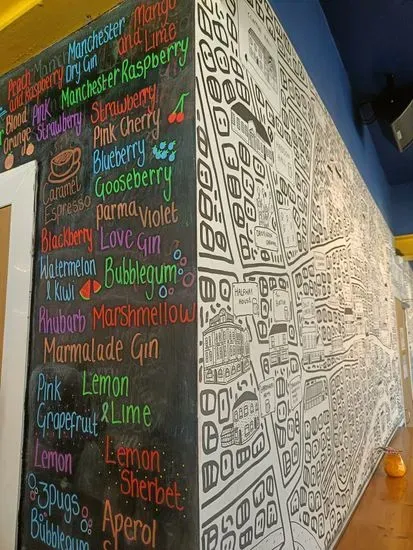 Peach
and Raspberry
Manchester
Dry Gin
Mango
and Lime
Blood
Orange
Pink
Strawberry
Manchester Raspberry
Strawberry
Pink Cherry
Caramel
Espresso
Blueberry
Gooseberry
Parma Violet
Blackberry
Love Gin
Watermelon
& Kiwi
Bubblegum
Rhubarb
Marshmellow
Marmalade Gin
Pink
Grapefruit
Lemon
& Lime
Lemon
Lemon
Sherbet
3pugs
Bubblegum
Aperol
HALFWAY
HOUSE